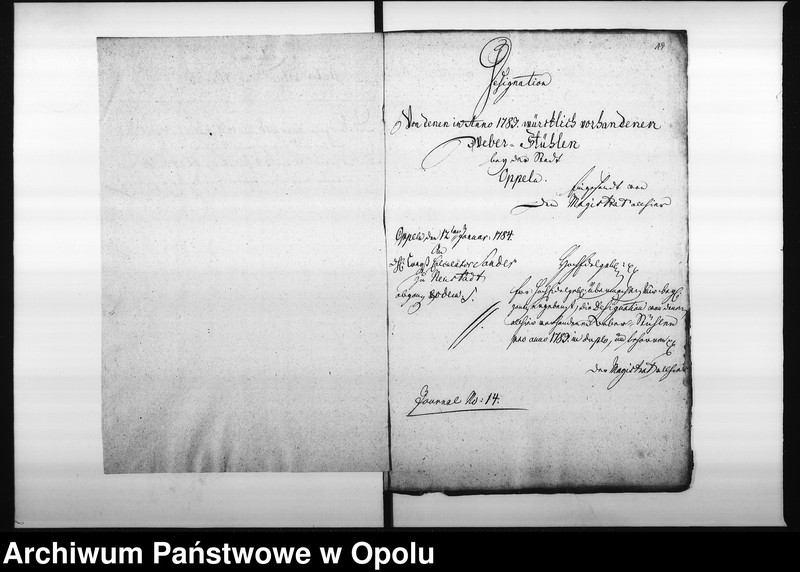 49
Designation
Von denen in Anno 1783. würcklich vorhandenen
Weber-Stühlen
bey der Stadt
Oppeln.
eingesandt von
dem Magistrat allhier
Oppeln, den 12ten Januar: 1784.
An
Calculator Sander
zu Neustadt
Hochedelgeb:
die Designation von denen
allhier vorhandenen Weber-Stühlen
pro anno 1783. in duplo, und
Der Magistrat allhier
Journal No: 14.
Archiwum Państwowe w Opolu